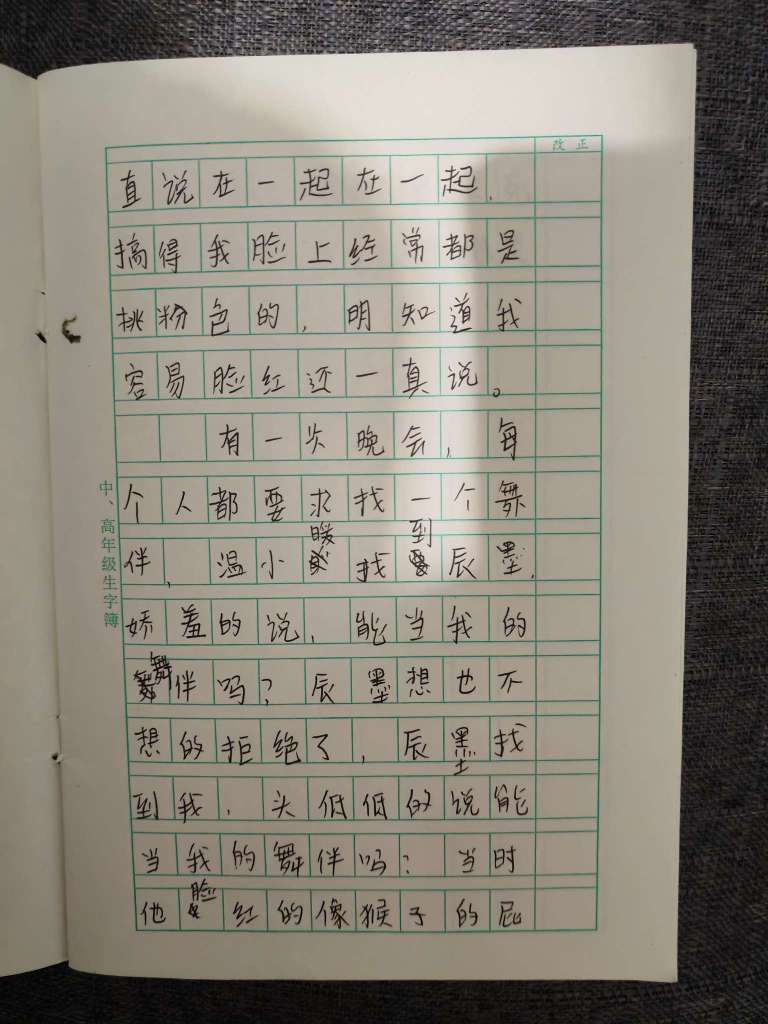 改正
直说在一起在一起.
搞得我脸上经常都是
挑粉色的，明知道我
容易脸红还一真说。
有一次晚会，每
个人都要求找一个舞
伴，温小暖找到辰墨，
娇羞的说，能当我的
舞伴吗？辰墨想也不
想的拒绝了，辰墨找
到我，头低低的说能
当我的舞伴吗？当时
他脸红的像猴子的屁
中、高年级生字簿